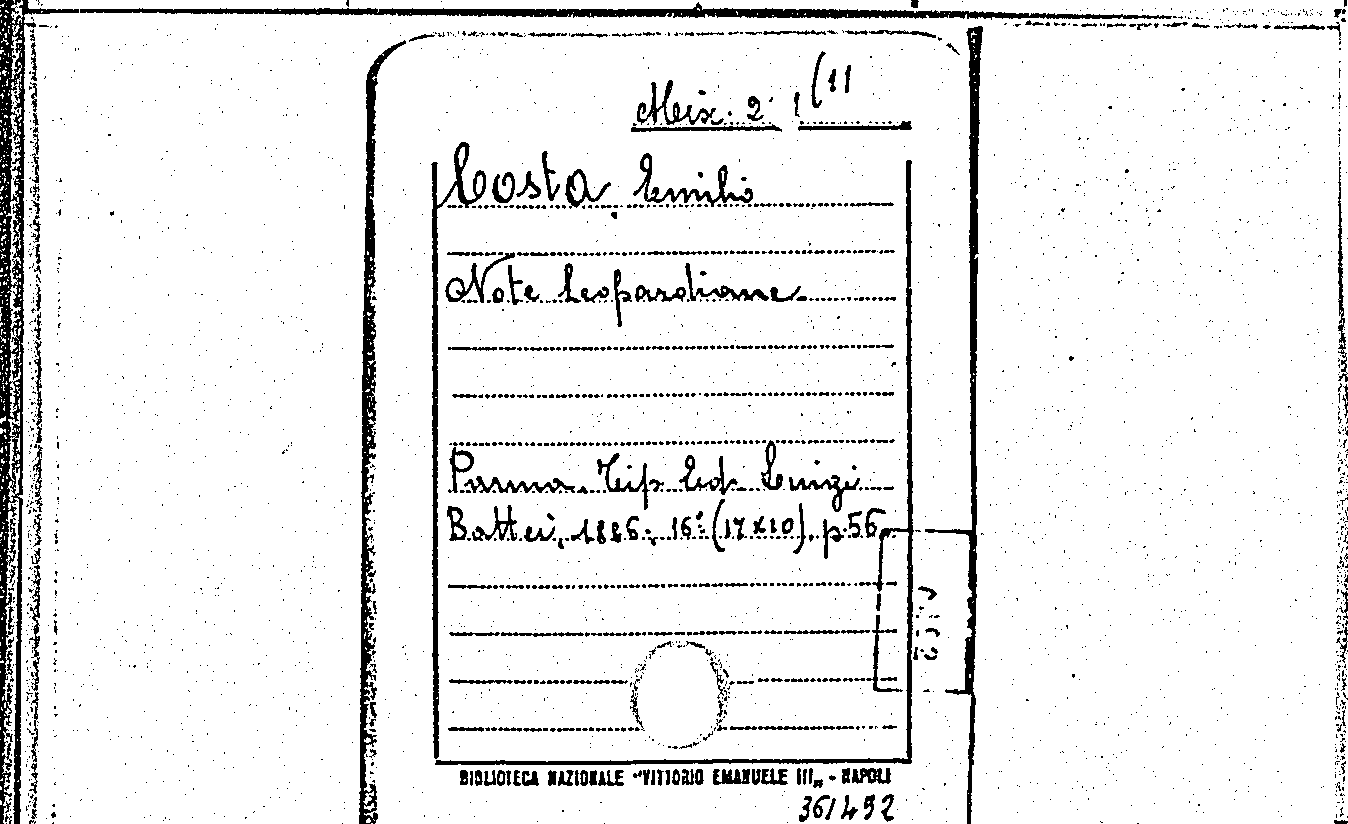 Misc. 2 (11
Costa Emilio
Note leopardiane.
Parma. Tip. Ed. Luigi
Battei, 1886; 16° (17x10), p. 56
BIBLIOTECA NAZIONALE "VITTORIO EMANUELE III„ - NAPOLI
361492